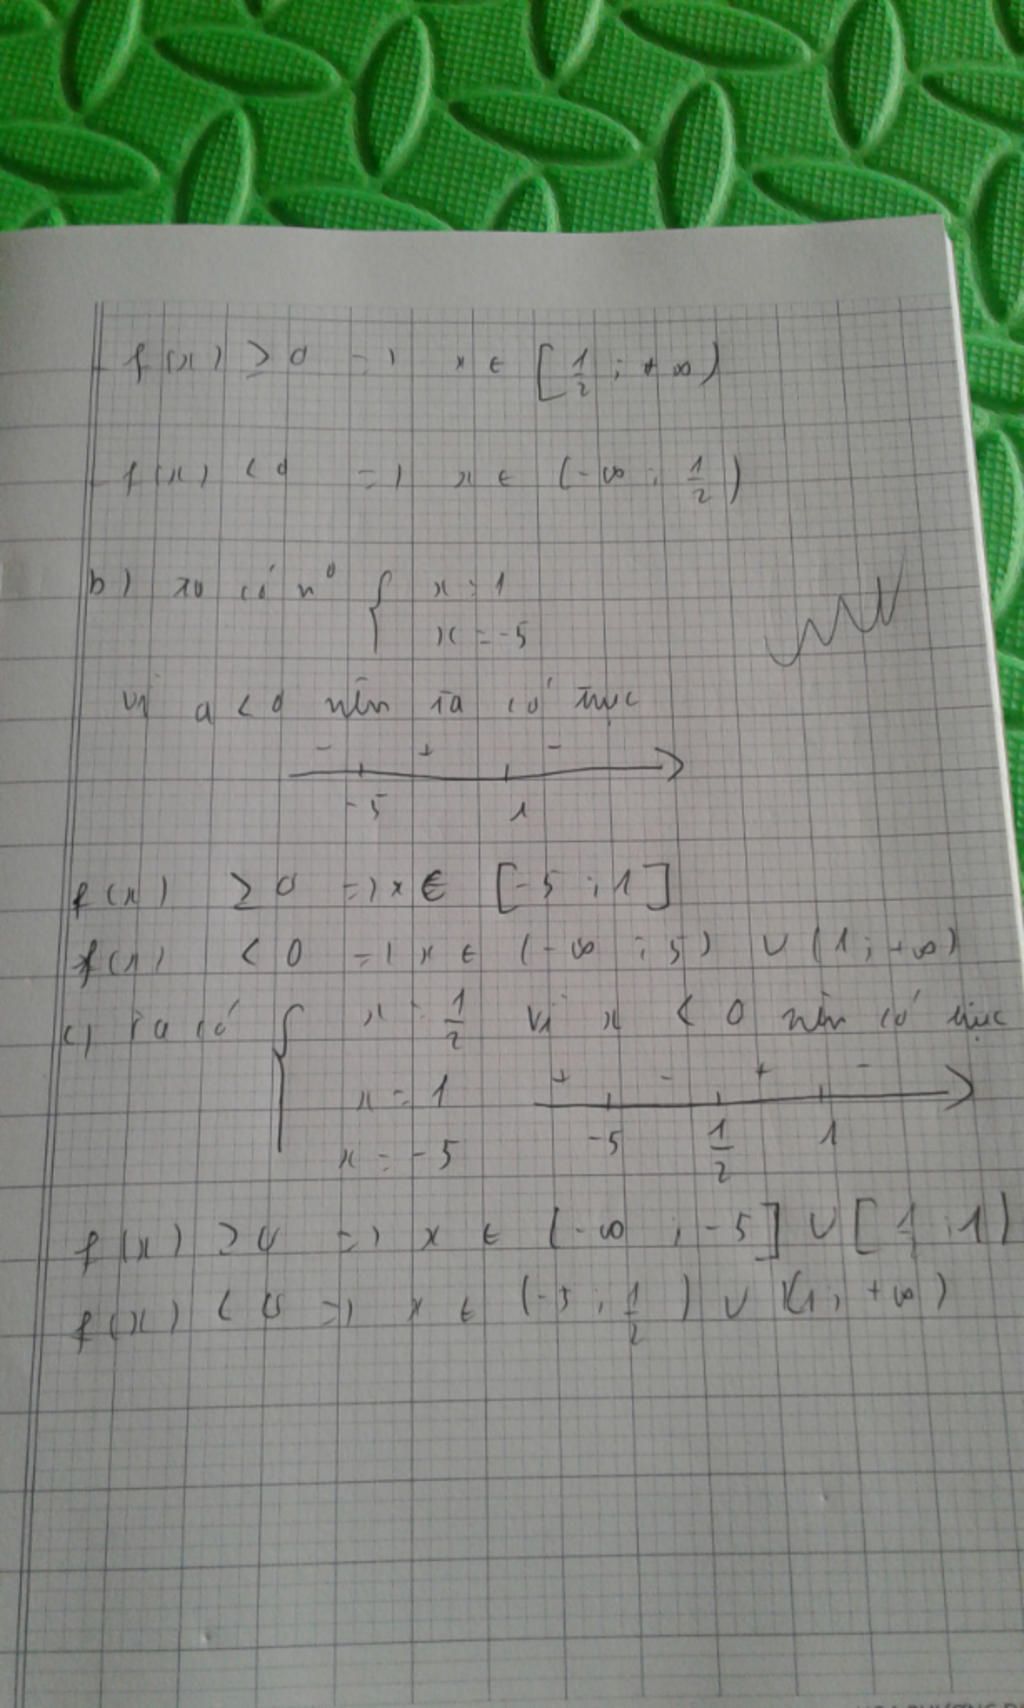 f(x) ≥ 0 => x ∈ [1/2 ; +∞)
f(x) < 0 => x ∈ (-∞ ; 1/2)
b) ta có n° { x = 1
x = -5
vì a < 0 nên ta có trục
- + -
-5 1
f(x) ≥ 0 => x ∈ [-5 ; 1]
f(x) < 0 => x ∈ (-∞ ; 5) ∪ (1 ; +∞)
c) ta có { x = 1/2 vì x < 0 nên có trục
x = 1
x = -5
+ - + -
-5 1/2 1
f(x) ≥ 0 => x ∈ (-∞ ; -5] ∪ [ ; 1)
f(x) < 0 => x ∈ (-5 ; 1/2) ∪ (1 ; +∞)